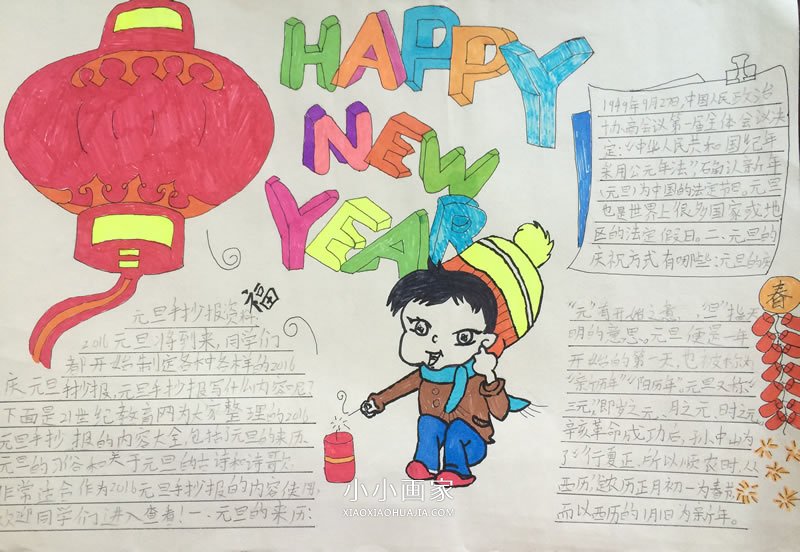 HAPPY
NEW
YEAR
1949年9月27日,中国人民政治
协商会议第一届全体会议决
定:《中华人民共和国纪年
采用公元年法》,确认新年
(元旦)为中国的法定节日。元旦
也是世界上很多国家或地
区的法定假日。二、元旦的
庆祝方式有哪些:元旦的
福
春
元旦手抄报资料
2016元旦将到来,同学们
都开始制定各种各样的2016
庆元旦手抄报,元旦手抄报写什么内容呢?
下面是21世纪教育网为大家整理的2016
元旦手抄报的内容大全,包括了元旦的来历
元旦的习俗和关于元旦的古诗和诗歌,
非常适合作为2016元旦手抄报的内容使用,
欢迎同学们进入查看!一、元旦的来历:
“元”有开始之意,“旦”指天
明的意思。元旦便是一年
开始的第一天,也被称为
“新历年”“阳历年”。元旦又称“
三元”,即岁之元、月之元、时之元。
辛亥革命成功后,孙中山为
了“行夏正,所以顺农时,从
西历”,定农历正月初一为春节,
而以西历的1月1日为新年。
小小画家
XIAOXIAOHUAJIA.COM